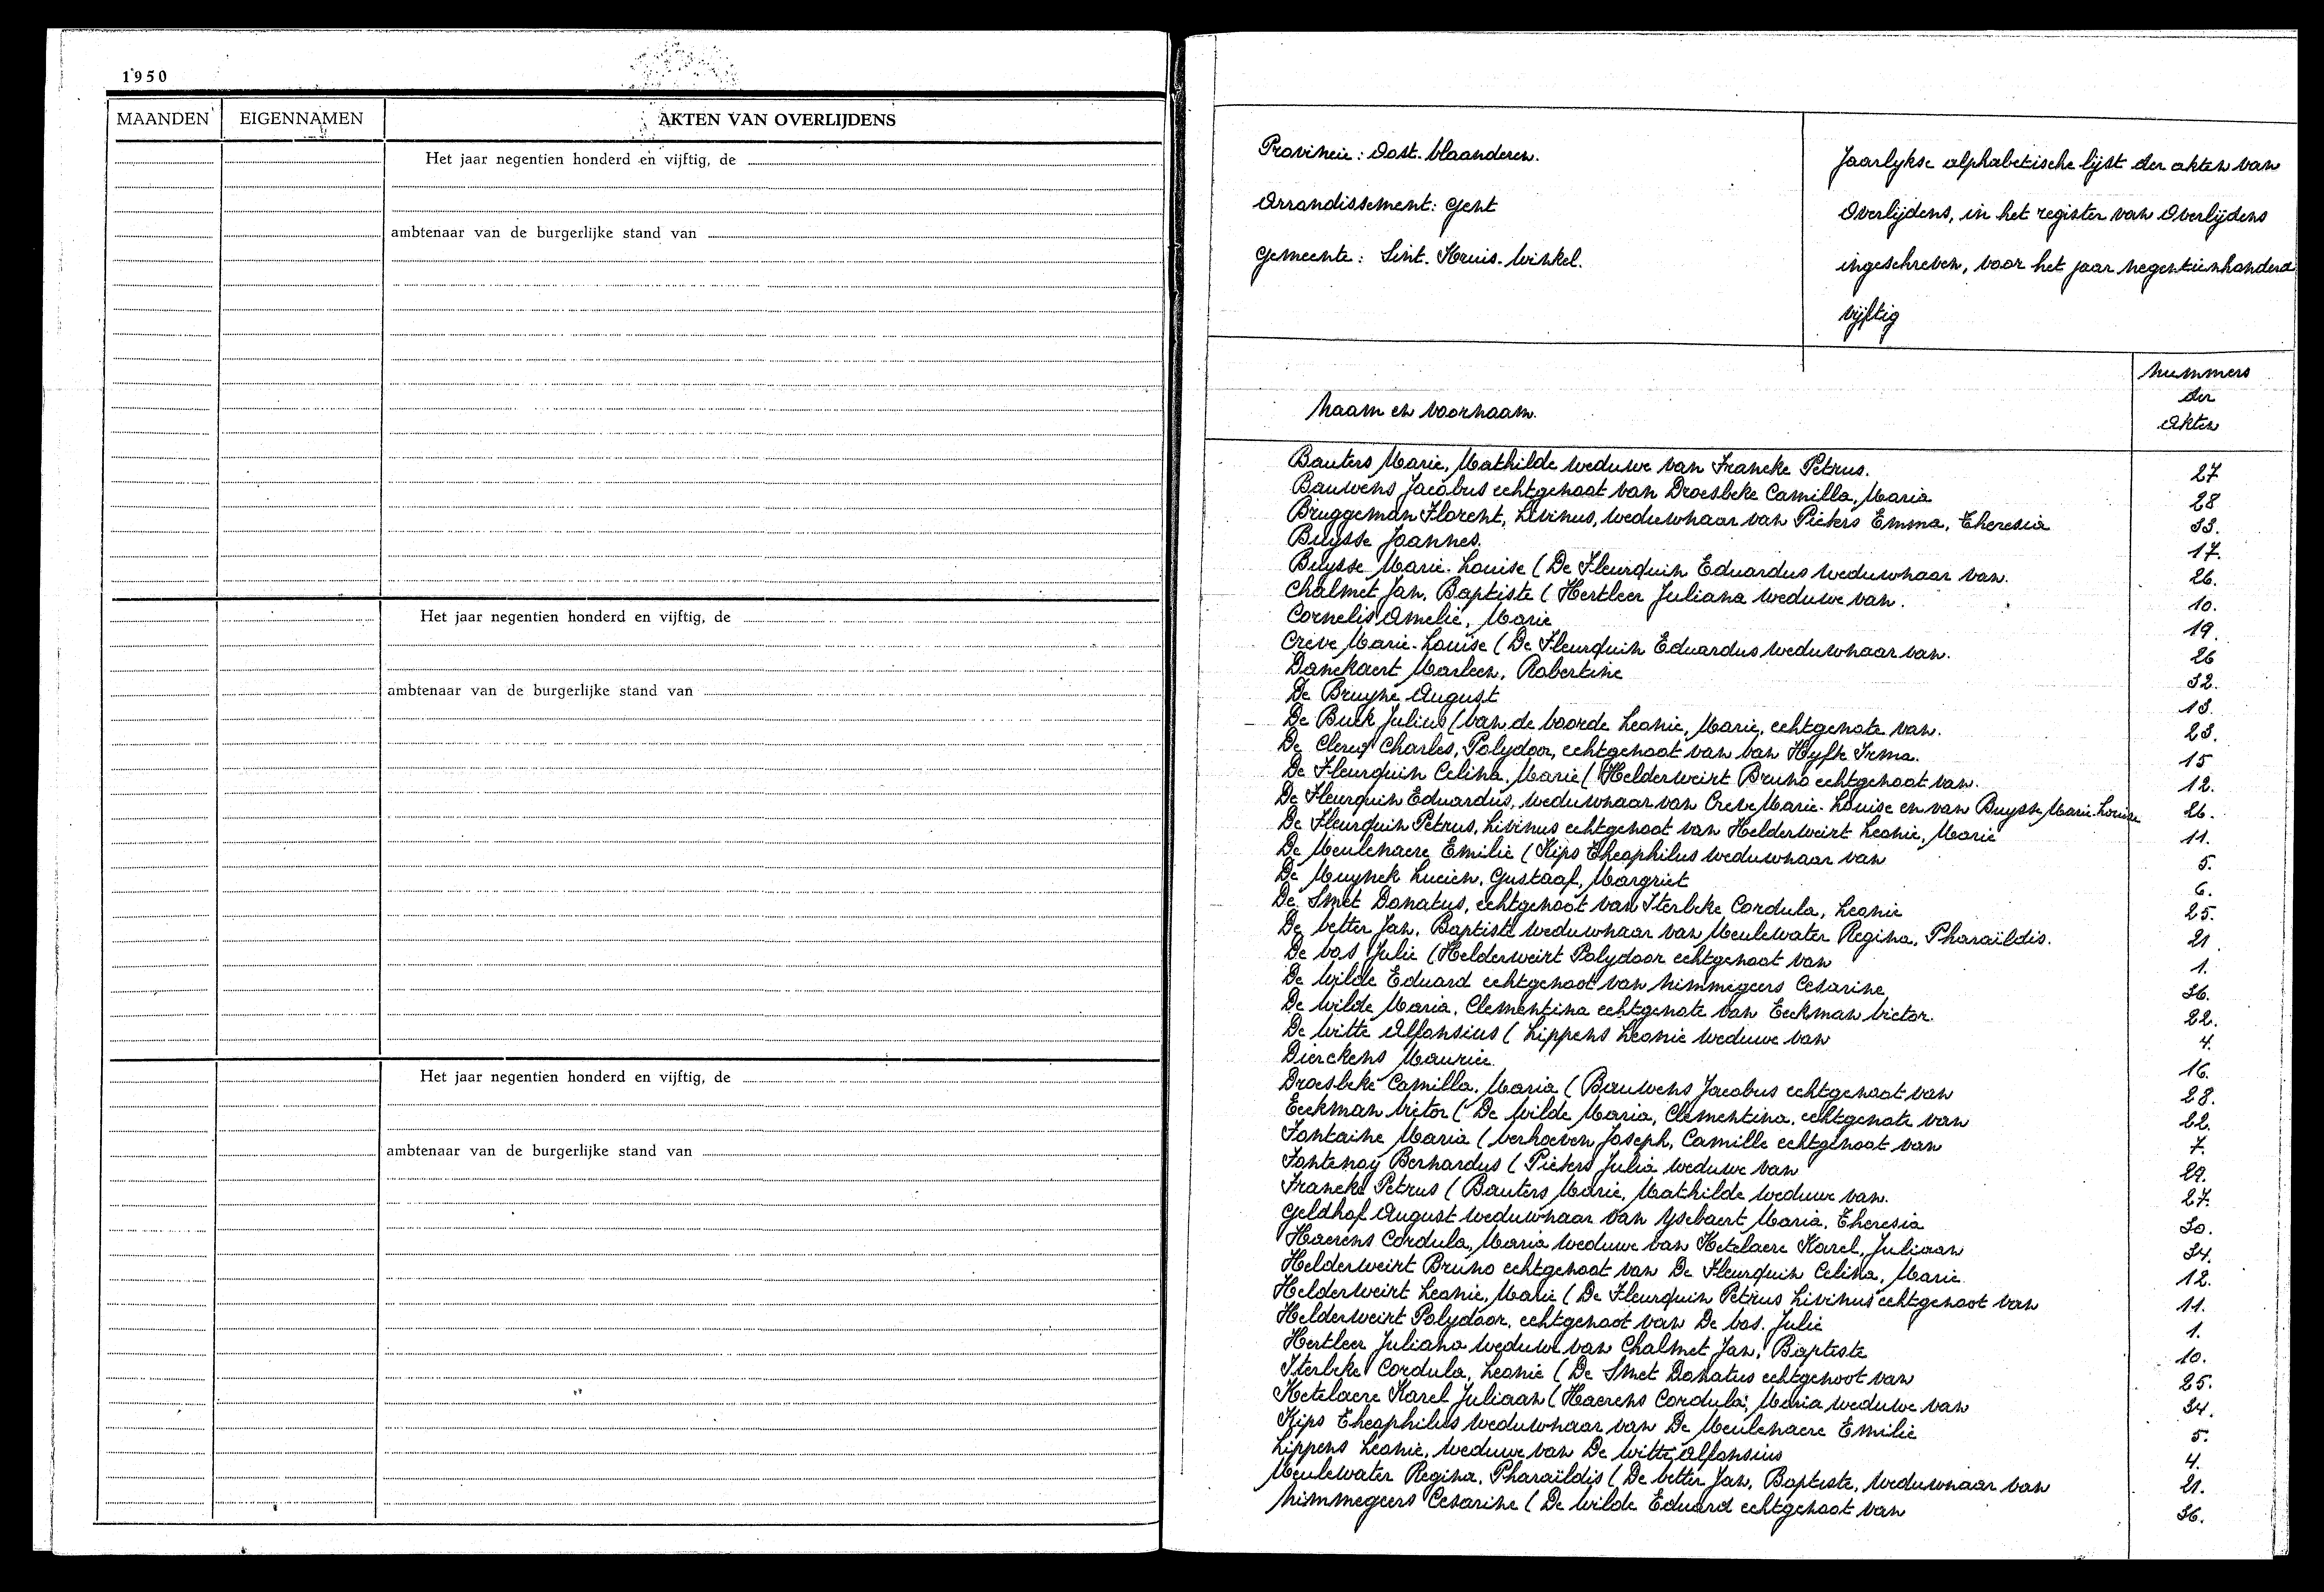 1950
MAANDEN EIGENNAMEN AKTEN VAN OVERLIJDENS
Het jaar negentien honderd en vijftig, de
ambtenaar van de burgerlijke stand van
Het jaar negentien honderd en vijftig, de
ambtenaar van de burgerlijke stand van
Het jaar negentien honderd en vijftig, de
ambtenaar van de burgerlijke stand van
Provincie: Oost-Vlaanderen.
Arrondissement: Gent
Gemeente: Sint-Kruis-Winkel.
Jaarlykse alphabetische lijst der akten van
Overlijdens, in het register van Overlijdens
ingeschreven, voor het jaar negentienhonderd
vijftig
Naam en voornaam.
Nummers
der
Akten
Bauters Marie, Mathilde weduwe van Francke Petrus. 27
Bauwens Jacobus echtgenoot van Droesbeke Camilla, Maria 28
Bruggeman Florent, Livinus, weduwnaar van Pieters Emma, Theresia 33.
Buysse Joannes. 17.
Buysse Marie-Louise (De Fleurquin Eduardus weduwnaar van. 26.
Chalmet Jan, Baptiste (Hertleer Juliana weduwe van. 10.
Cornelis Amelie, Marie 19.
Creve Marie-Louise (De Fleurquin Eduardus weduwnaar van. 26
Danckaert Marleen, Robertine 32.
De Bruyne August 13.
De Buck Julius (Van de Voorde Leonie, Marie, echtgenote van. 23.
De Clercq Charles, Polydoor, echtgenoot van Van Hyfte Irma. 15
De Fleurquin Celina, Marie (Helderweirt Bruno echtgenoot van. 12.
De Fleurquin Eduardus, weduwnaar van Creve Marie-Louise en van Buysse Marie-Louise 26.
De Fleurquin Petrus, Livinus echtgenoot van Helderweirt Leonie, Marie 11.
De Meulenaere Emilie (Kips Theophilus weduwnaar van 5.
De Muynck Lucien, Gustaaf, Margriet 6.
De Smet Donatus, echtgenoot van Iterbeke Cordula, Leonie 25.
De Vetter Jan, Baptiste weduwnaar van Meulewater Regina, Pharaïldis. 21.
De Vos Julie (Helderweirt Polydoor echtgenoot van 1.
De Wilde Eduard echtgenoot van Nimmegeers Cesarine 36.
De Wilde Maria, Clementina echtgenote van Eeckman Victor. 22.
De Witte Alfonsius (Lippens Leonie weduwe van 4.
Dierckens Maurice 16.
Droesbeke Camilla, Maria (Bauwens Jacobus echtgenoot van 28.
Eeckman Victor (De Wilde Maria, Clementina, echtgenote van 22.
Fontaine Maria (Verhoeven Joseph, Camille echtgenoot van 7.
Fontenoy Bernardus (Pieters Julia weduwe van 29.
Francke Petrus (Bauters Marie, Mathilde weduwe van. 27.
Geldhof August weduwnaar van Ysebaert Maria, Theresia 30.
Haerens Cordula, Maria weduwe van Ketelaere Karel, Juliaan 34.
Helderweirt Bruno echtgenoot van De Fleurquin Celina, Marie 12.
Helderweirt Leonie, Marie (De Fleurquin Petrus Livinus echtgenoot van 11.
Helderweirt Polydoor, echtgenoot van De Vos. Julie 1.
Hertleer Juliana weduwe van Chalmet Jan, Baptiste 10.
Iterbeke Cordula, Leonie (De Smet Donatus echtgenoot van 25.
Ketelaere Karel Juliaan (Haerens Cordula, Maria weduwe van 34.
Kips Theophilus weduwnaar van De Meulenaere Emilie 5.
Lippens Leonie, weduwe van De Witte Alfonsius 4.
Meulewater Regina, Pharaïldis (De Vetter Jan, Baptiste, weduwnaar van 21.
Nimmegeers Cesarine (De Wilde Eduard echtgenoot van 36.